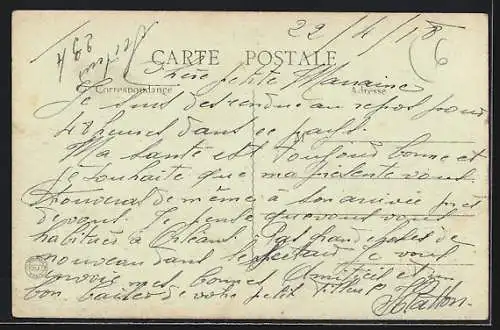 22/4/18
Vertus
234
6
CARTE POSTALE
Correspondance Adresse
Chère petite Marraine
Je suis descendue au repos pour
48 heures dans ce pays.
Ma santé est toujour bonne et
je souhaite que ma présente vous
trouveras de même à son arrivée près
de vous. Je pense que vous vous
habitués à Orléans. Pas grand choses de
nouveau dans le secteur. Je vous
envoie mes bonnes Amitiés et un
bon baiser de votre petit filleul